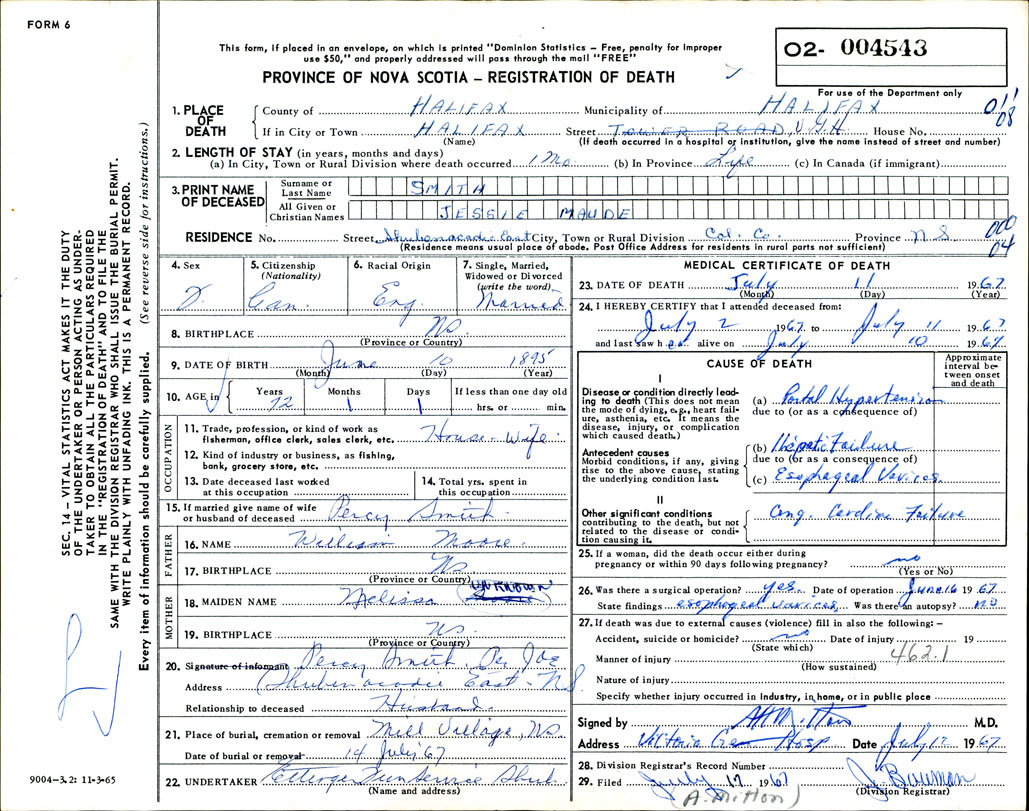 FORM 6
This form, if placed in an envelope, on which is printed "Dominion Statistics – Free, penalty for improper
use $50," and properly addressed will pass through the mail "FREE"
O2- 004543
PROVINCE OF NOVA SCOTIA – REGISTRATION OF DEATH
For use of the Department only
011
08
1. PLACE OF DEATH
County of HALIFAX Municipality of HALIFAX
If in City or Town HALIFAX Street TOWER ROAD V.G.H House No.
(Name) (If death occurred in a hospital or institution, give the name instead of street and number)
2. LENGTH OF STAY (in years, months and days)
(a) In City, Town or Rural Division where death occurred 1 Mo. (b) In Province Life (c) In Canada (if immigrant)
3. PRINT NAME OF DECEASED
Surname or Last Name SMITH
All Given or Christian Names JESSIE MAUDE
000
04
RESIDENCE No. Street Shubenacadie East City, Town or Rural Division Col. Co. Province N S
(Residence means usual place of abode. Post Office Address for residents in rural parts not sufficient)
4. Sex F.
5. Citizenship (Nationality) Can.
6. Racial Origin Eng.
7. Single, Married, Widowed or Divorced (write the word) Married
8. BIRTHPLACE NS
(Province or Country)
9. DATE OF BIRTH June 10 1895
(Month) (Day) (Year)
10. AGE in Years 72 Months 1 Days 1 If less than one day hrs. or min.
OCCUPATION
11. Trade, profession, or kind of work as fisherman, office clerk, sales clerk, etc. House-Wife
12. Kind of industry or business, as fishing, bank, grocery store, etc.
13. Date deceased last worked at this occupation
14. Total yrs. spent in this occupation
15. If married give name of wife or husband of deceased Percy Smith
FATHER
16. NAME William Moore
17. BIRTHPLACE NS
(Province or Country)
MOTHER
18. MAIDEN NAME Melissa UNKNOWN
19. BIRTHPLACE NS
(Province or Country)
20. Signature of informant Percy Smith Per Joe
Address Shubenacadie East - NS
Relationship to deceased Husband
21. Place of burial, cremation or removal Mill Village NS
Date of burial or removal 14 July 67
22. UNDERTAKER Ettinger Fun Service Shub
(Name and address)
MEDICAL CERTIFICATE OF DEATH
23. DATE OF DEATH July 11 1967
(Month) (Day) (Year)
24. I HEREBY CERTIFY that I attended deceased from:
July 2 1967 to July 11 1967
and last saw h er alive on July 10 1967
CAUSE OF DEATH
Approximate interval between onset and death
I
Disease or condition directly leading to death (This does not mean the mode of dying, e.g., heart failure, asthenia, etc. It means the disease, injury, or complication which caused death.)
(a) Portal Hypertension
due to (or as a consequence of)
Antecedent causes
Morbid conditions, if any, giving rise to the above cause, stating the underlying condition last.
(b) Hepatic Failure
due to (or as a consequence of)
(c) Esophageal Varices
II
Other significant conditions contributing to the death, but not related to the disease or condition causing it.
Cong. Cardiac Failure
25. If a woman, did the death occur either during pregnancy or within 90 days following pregnancy? no
(Yes or No)
26. Was there a surgical operation? yes. Date of operation June 16 1967
State findings esophageal varices, Was there an autopsy? no
27. If death was due to external causes (violence) fill in also the following: –
Accident, suicide or homicide? no Date of injury 19
(State which)
Manner of injury 462.1
(How sustained)
Nature of injury
Specify whether injury occurred in Industry, in home, or in public place
Signed by AH Mitton M.D.
Address Victoria Gen Hosp Date July 12 1967
28. Division Registrar's Record Number
29. Filed July 17 1967 J Bauman
(A. Mitton) (Division Registrar)
SEC. 14 – VITAL STATISTICS ACT MAKES IT THE DUTY
OF THE UNDERTAKER OR PERSON ACTING AS UNDER-
TAKER TO OBTAIN ALL THE PARTICULARS REQUIRED
IN THE "REGISTRATION OF DEATH" AND TO FILE THE
SAME WITH THE DIVISION REGISTRAR WHO SHALL ISSUE THE BURIAL PERMIT.
WRITE PLAINLY WITH UNFADING INK. THIS IS A PERMANENT RECORD.
Every item of information should be carefully supplied. (See reverse side for instructions.)
9004–3.2: 11-3-65